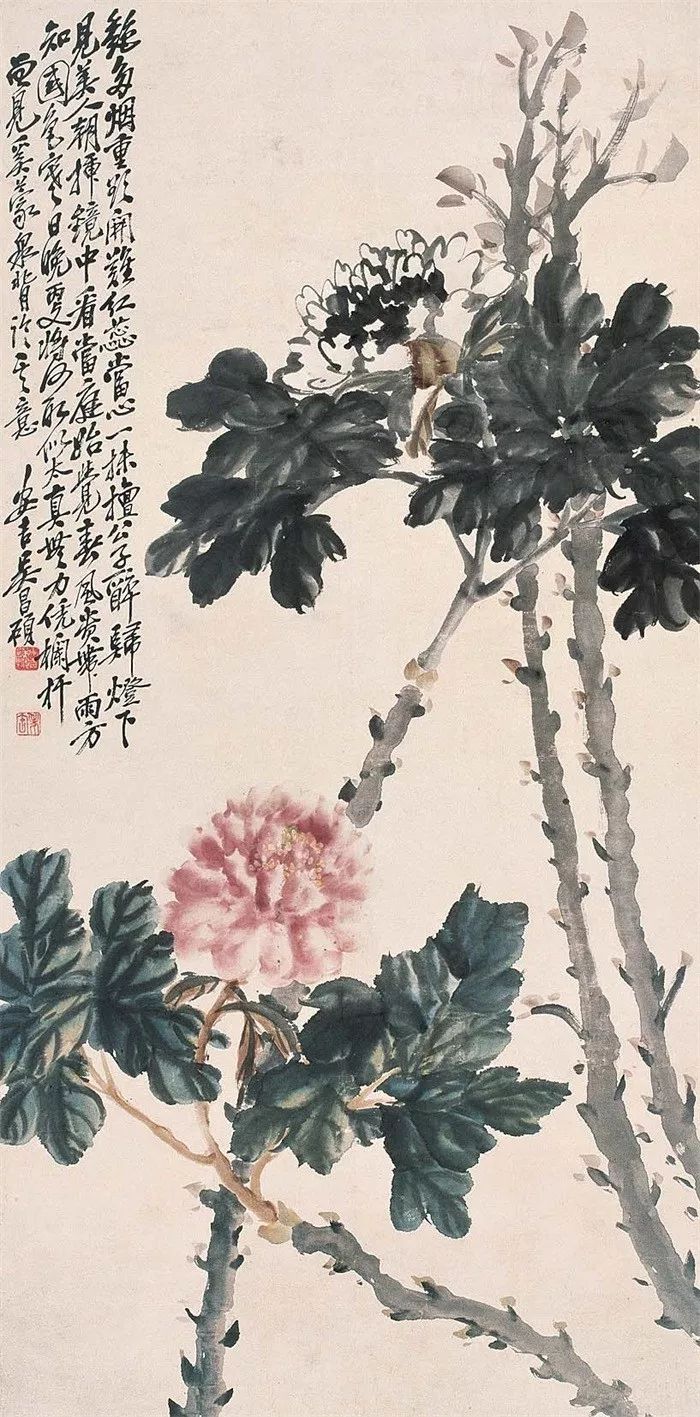 艷多烟重欲開難紅蕊當心一抹檀公子醉歸燈下
見美人朝插鏡中看當庭始覺春風貴帶雨方
知國色寒日晚更將何所似太真無力凭欄杆
曾見奚蒙泉背臨其意 安吉吳昌碩